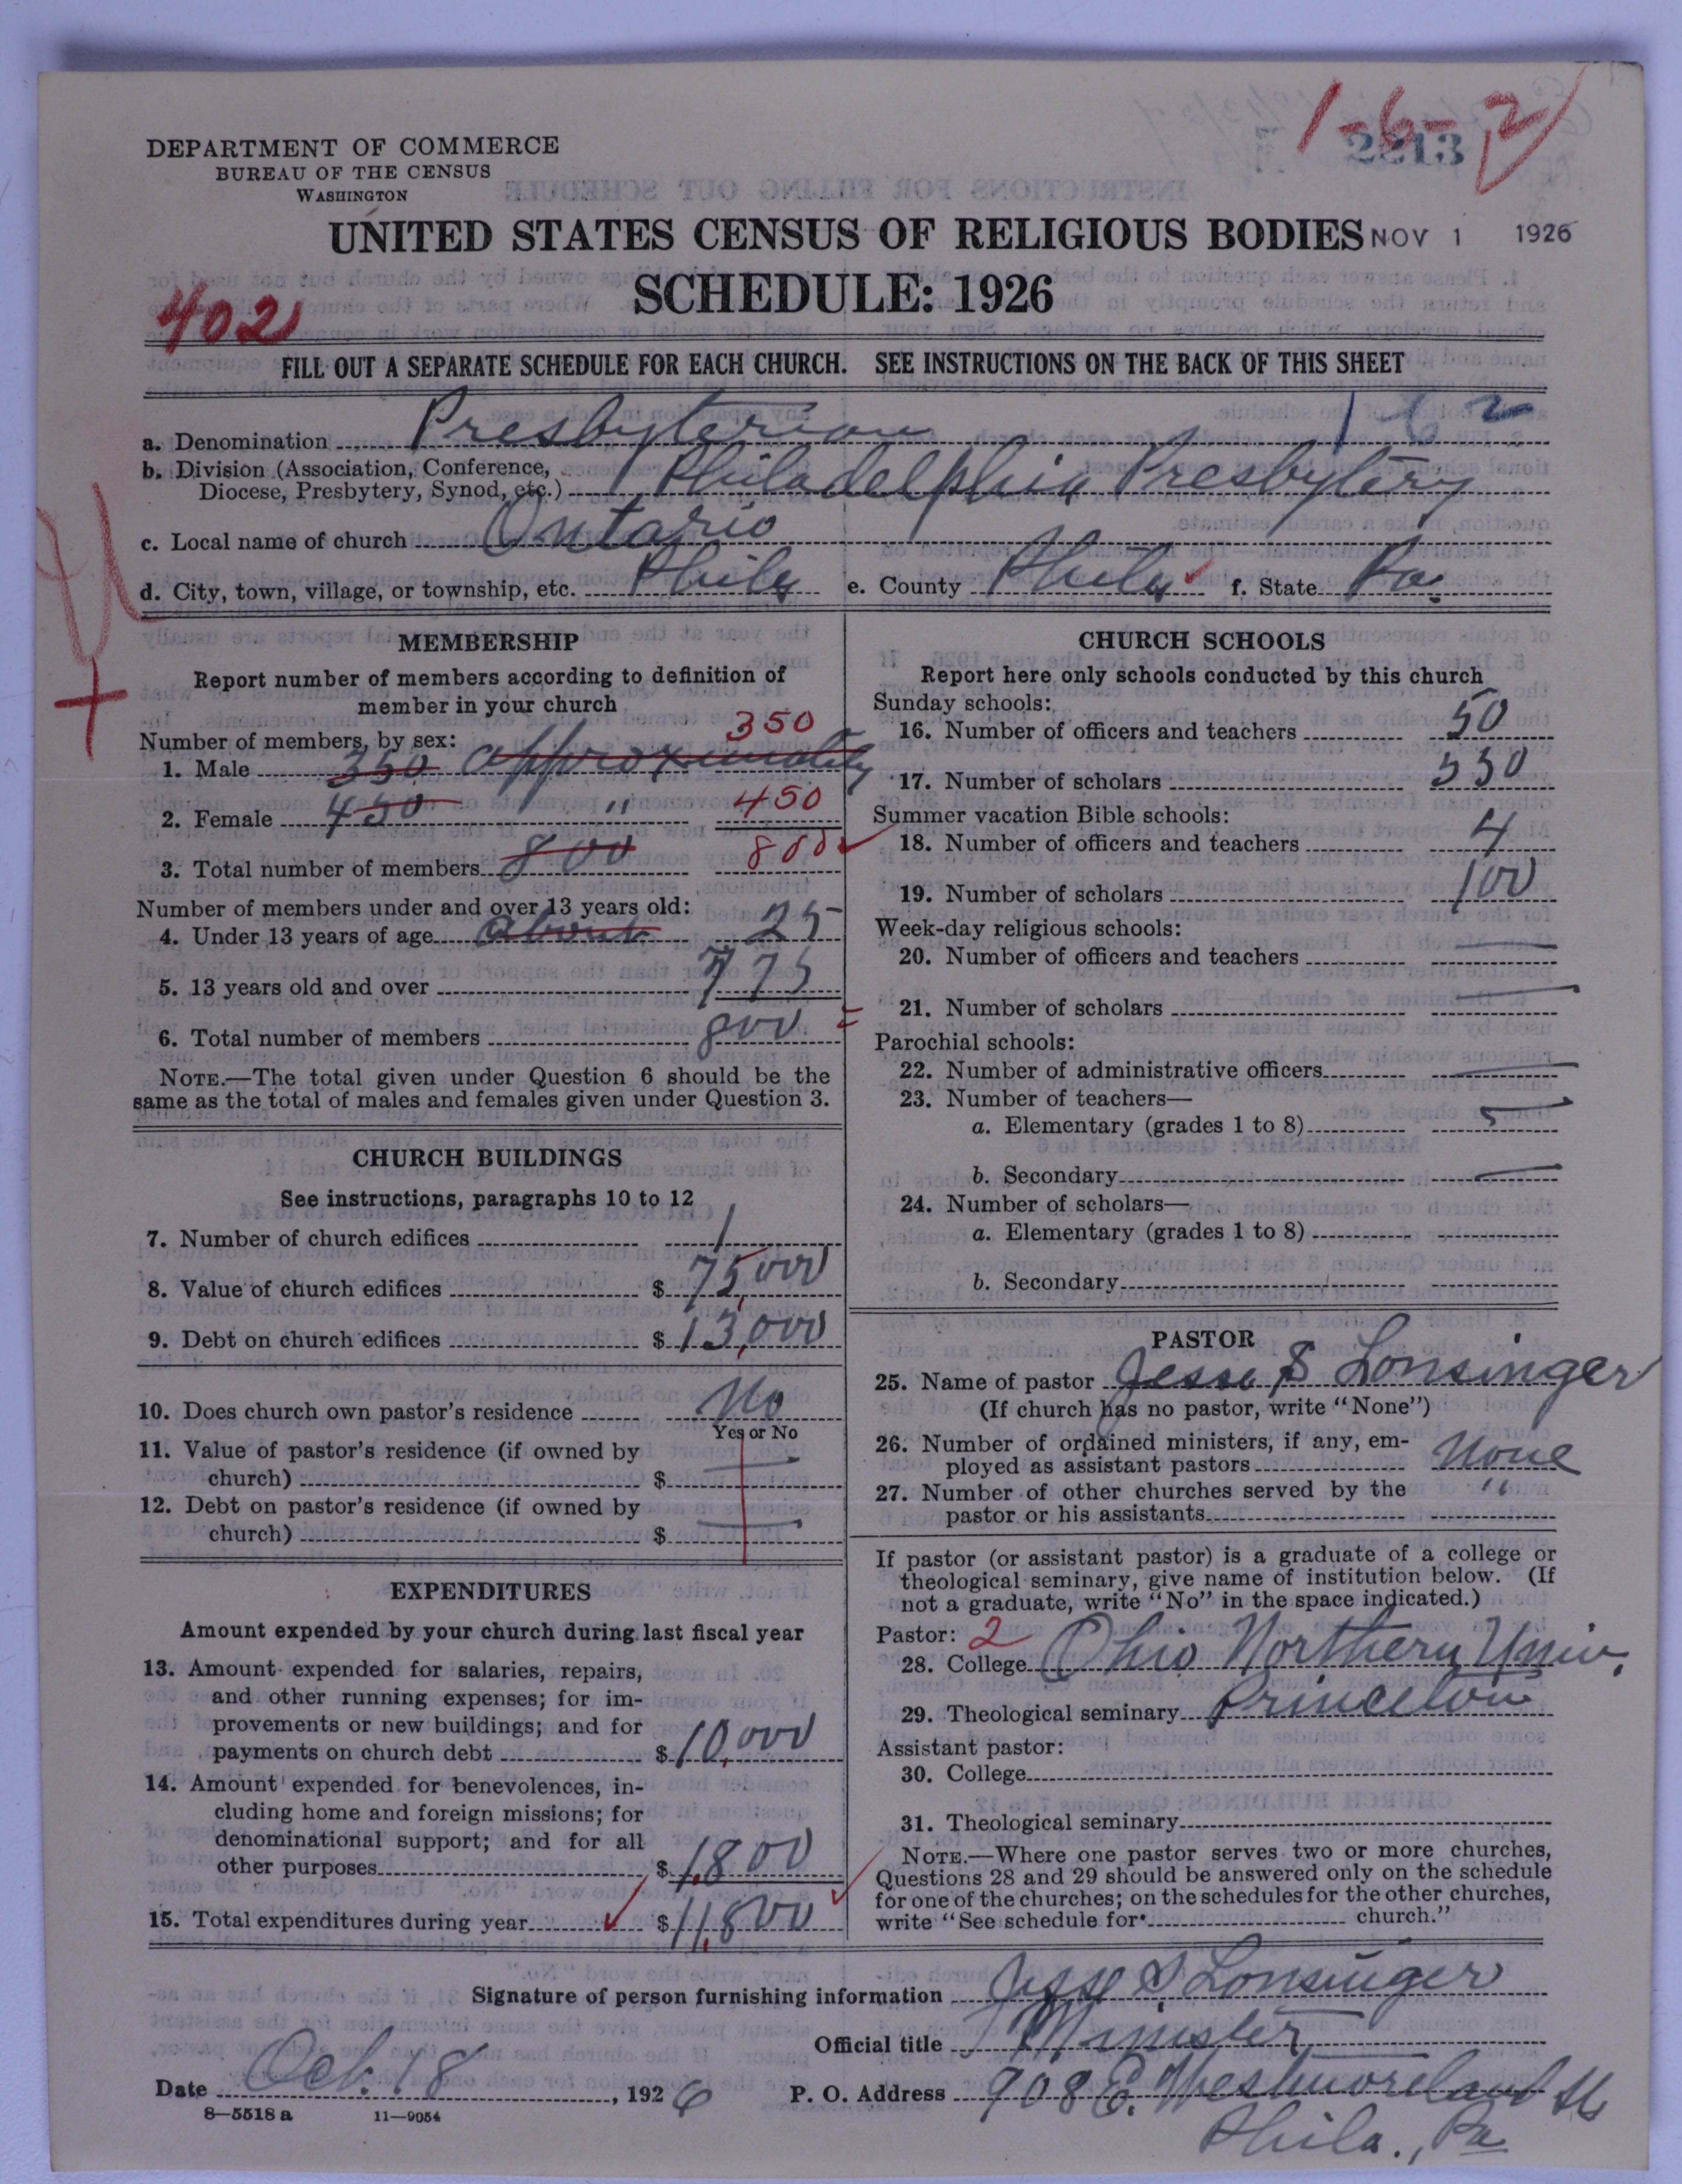 1-6-2
2213
DEPARTMENT OF COMMERCE
BUREAU OF THE CENSUS
WASHINGTON
UNITED STATES CENSUS OF RELIGIOUS BODIES NOV 1 1926
SCHEDULE: 1926
402
FILL OUT A SEPARATE SCHEDULE FOR EACH CHURCH. SEE INSTRUCTIONS ON THE BACK OF THIS SHEET
a. Denomination Presbyterian 1 6 2
b. Division (Association, Conference, Diocese, Presbytery, Synod, etc.) Philadelphia Presbytery
c. Local name of church Ontario
d. City, town, village, or township, etc. Phila e. County Phila f. State Pa.
MEMBERSHIP
Report number of members according to definition of
member in your church
Number of members, by sex: 350
1. Male 350 approximately
2. Female 450 " 450
3. Total number of members 800 800
Number of members under and over 13 years old:
4. Under 13 years of age about 25
5. 13 years old and over 775
6. Total number of members 800
NOTE.—The total given under Question 6 should be the
same as the total of males and females given under Question 3.
CHURCH BUILDINGS
See instructions, paragraphs 10 to 12
7. Number of church edifices 1
8. Value of church edifices $ 75,000
9. Debt on church edifices $ 13,000
10. Does church own pastor's residence No
Yes or No
11. Value of pastor's residence (if owned by
church) $ —
12. Debt on pastor's residence (if owned by
church) $ —
EXPENDITURES
Amount expended by your church during last fiscal year
13. Amount expended for salaries, repairs,
and other running expenses; for im-
provements or new buildings; and for
payments on church debt $ 10,000
14. Amount expended for benevolences, in-
cluding home and foreign missions; for
denominational support; and for all
other purposes $ 1,800
15. Total expenditures during year $ 11,800
CHURCH SCHOOLS
Report here only schools conducted by this church
Sunday schools:
16. Number of officers and teachers 50
17. Number of scholars 550
Summer vacation Bible schools:
18. Number of officers and teachers 4
19. Number of scholars 100
Week-day religious schools:
20. Number of officers and teachers —
21. Number of scholars —
Parochial schools:
22. Number of administrative officers —
23. Number of teachers—
a. Elementary (grades 1 to 8)
b. Secondary —
24. Number of scholars—
a. Elementary (grades 1 to 8)
b. Secondary
PASTOR
25. Name of pastor Jesse S Lonsinger
(If church has no pastor, write "None")
26. Number of ordained ministers, if any, em-
ployed as assistant pastors None
27. Number of other churches served by the "
pastor or his assistants
If pastor (or assistant pastor) is a graduate of a college or
theological seminary, give name of institution below. (If
not a graduate, write "No" in the space indicated.)
Pastor: 2
28. College Ohio Northern Univ.
29. Theological seminary Princeton
Assistant pastor:
30. College
31. Theological seminary
NOTE.—Where one pastor serves two or more churches,
Questions 28 and 29 should be answered only on the schedule
for one of the churches; on the schedules for the other churches,
write "See schedule for church."
Signature of person furnishing information Jesse S Lonsinger
Official title Minister
Date Oct. 18, 1926 P. O. Address 908 E. Westmoreland St
Phila., Pa
8—5518 a 11—9054